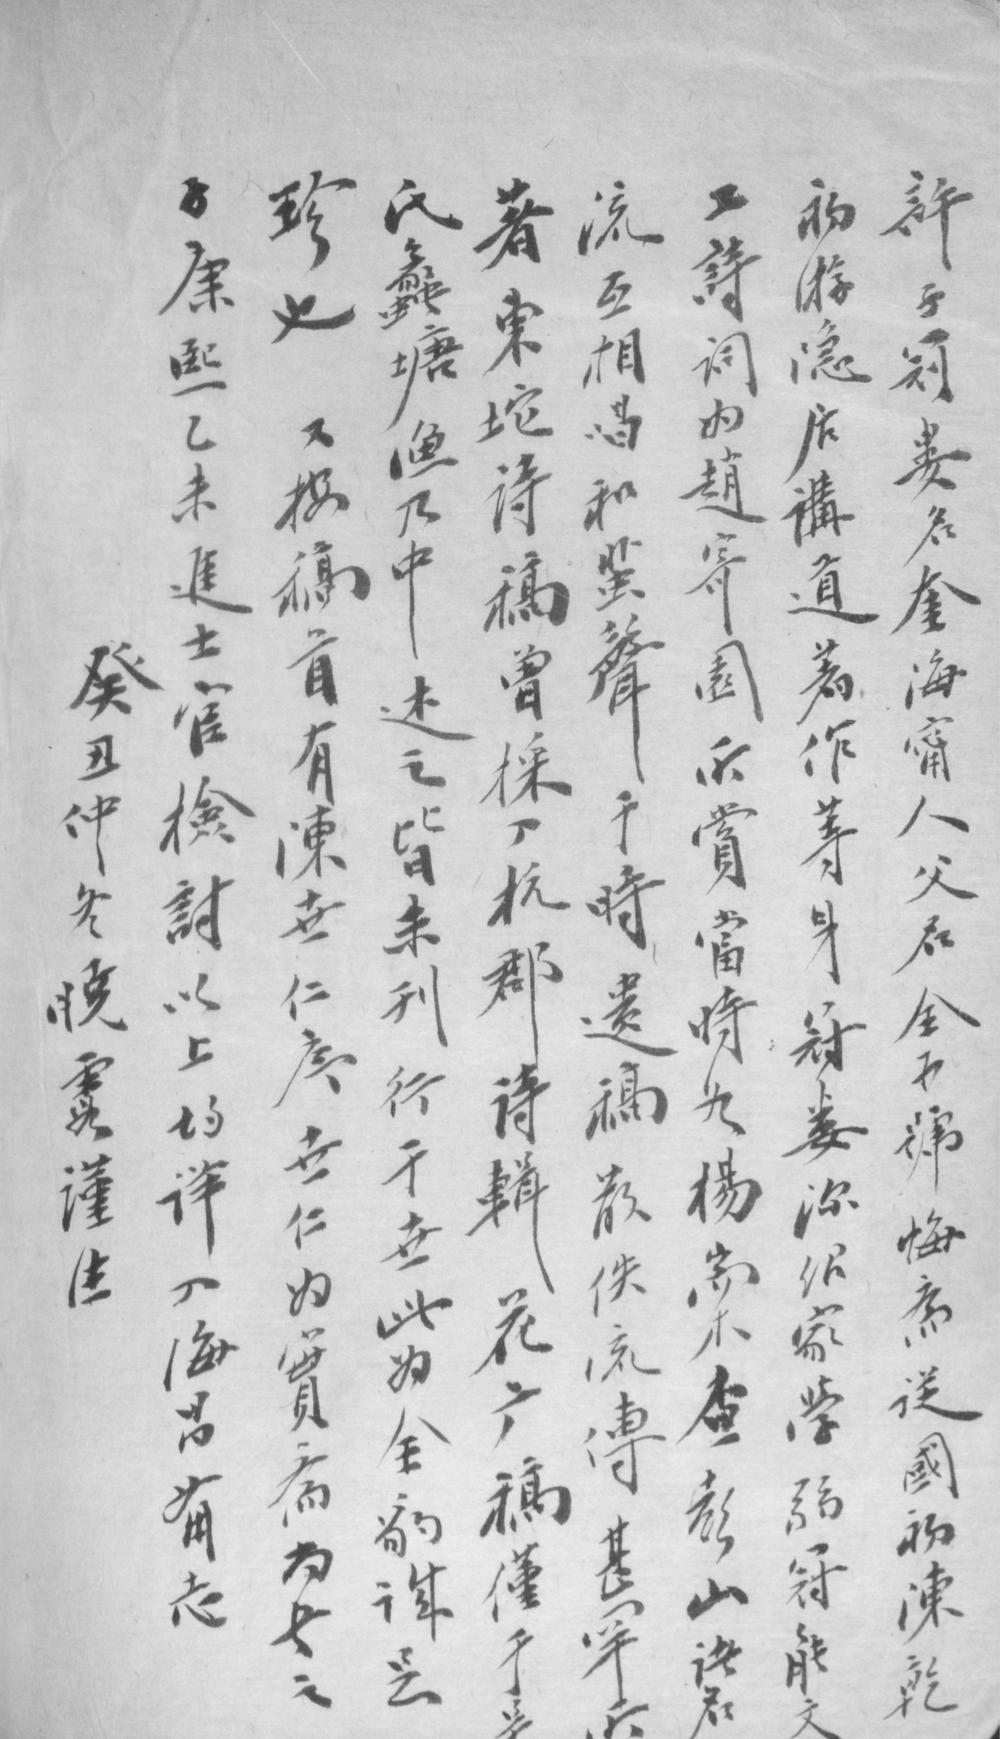 許子冠婁名奎海甯人父名全可號悔齋從國初陳乾
初游隱居講道著作等身冠婁深紹家學弱冠能文
工詩詞為趙寄園所賞當時如楊崇木查彭山諸君
流互相唱和蜚聲于時遺稿散佚流傳甚罕所
著東坨詩稿曾採入杭郡詩輯花广稿僅于吳
氏蠡塘漁乃中述之皆未刊行于世此為全豹誠足
珍也 又按稿首有陳世仁序世仁為實齋為長之
子康熙乙未進士官檢討以上均詳入海昌備志
癸丑仲冬曉霞謹注